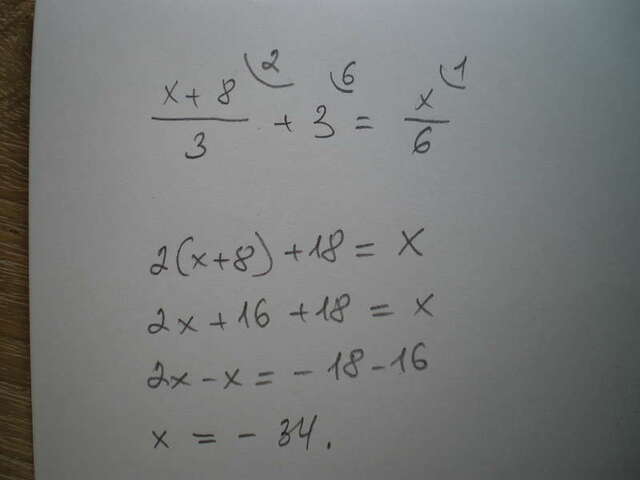 (x + 8)/3 ⁽² + 3 ⁽⁶ = x/6 ⁽¹
2(x+8) + 18 = x
2x + 16 + 18 = x
2x - x = - 18 - 16
x = - 34.